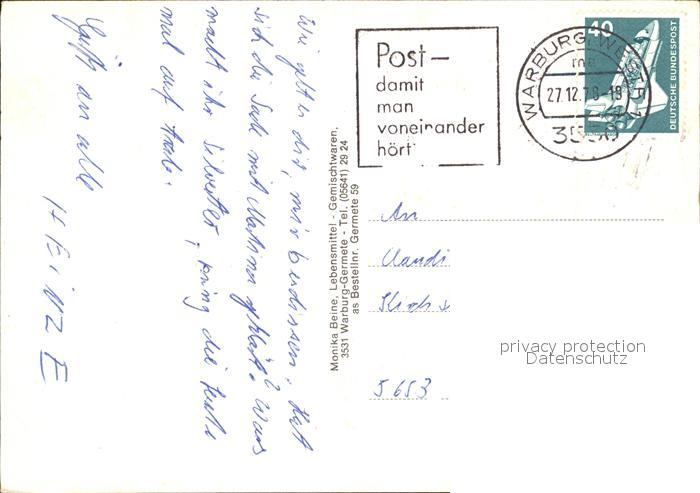 Wie geht es dir, mir beschissen. Hat
sich die Sache mit Martina geklärt? Was
macht ihr Silvester, ring die Leute
mal auf Trab.
Gruß an alle
HEINZ E
Monika Beine, Lebensmittel - Gemischtwaren,
3531 Warburg-Germete - Tel. (05641) 29 24
as Bestellnr. Germete 59
Post –
damit
man
voneinander
hört
WARBURG, WESTF
27.12.78-18
40
DEUTSCHE BUNDESPOST
An
Claudi
5653
privacy protection
Datenschutz